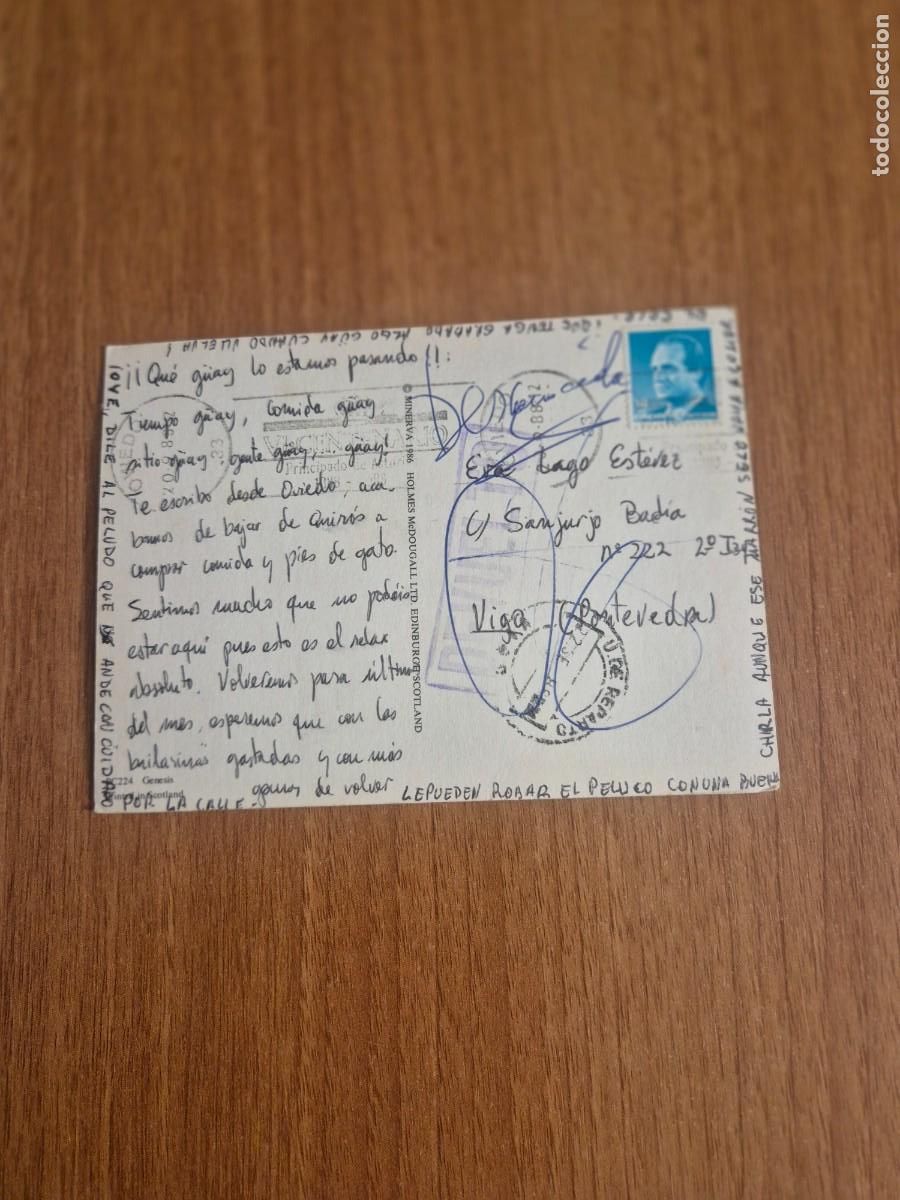 ¡¡Qué güay lo estamos pasando!!:
Tiempo güay, comida güay
sitio güay, gente güay, güay!
Te escribo desde Oviedo; aca-
bamos de bajar de Quirós a
comprar comida y pies de gato.
Sentimos mucho que no podáis
estar aquí pues esto es el relax
absoluto. Volveremos para últimos
del mes, esperemos que con las
gastadas y con más
ganas de volver
¡OYE, DILE AL PELUDO QUE ANDE CON CUIDADO
POR LA CALLE.
LE PUEDEN ROBAR EL PELUCO CON UNA BUENA
CHIRLA AUNQUE ESE MARRÓN SE LO VAYA A COMER
¡QUE TENGA GRABADO ALGO GÜAY CUANDO VUELVA!
© MINERVA 1986 HOLMES McDOUGALL LTD. EDINBURGH SCOTLAND
C224 Genesis
Printed in Scotland
Principado de
OVIEDO
Eva Lago Estévez
C/ Sanjurjo Badía
nº 222 2º Izq
Vigo (Pontevedra)
U. DE REPARTO
todocoleccion